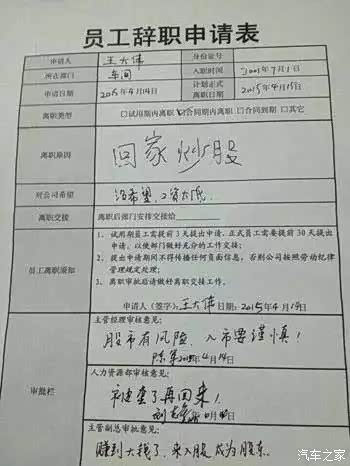 员工辞职申请表
申请人 王大伟 身份证号
所在部门 车间 入职时间 2001年7月1日
申请日期 2015年4月14日 计划正式离职日期 2015年4月15日
离职类型 □试用期内离职 ☑合同期内离职 □合同到期 □其它
离职原因 回家炒股
对公司希望 没希望,工资太低
离职交接 离职后部门安排交接给
员工离职须知
1、试用期员工需提前3天提出申请,正式员工需要提前30天提出
申请,以使部门做好充分的工作交接;
2、提出申请期间不得传播任何负面信息,否则公司按照劳动纪律
管理规定处理;
3、离职审批后请做好离职交接工作。
申请人(签字):王大伟 日期:2015年4月14日
审批栏
主管经理审核意见:
股市有风险,入市要谨慎!
陈 2015年4月14日
人力资源部审核意见:
被套了再回来!
刘
主管副总审批意见:
赚到大钱了,来入股成为股东。
汽车之家